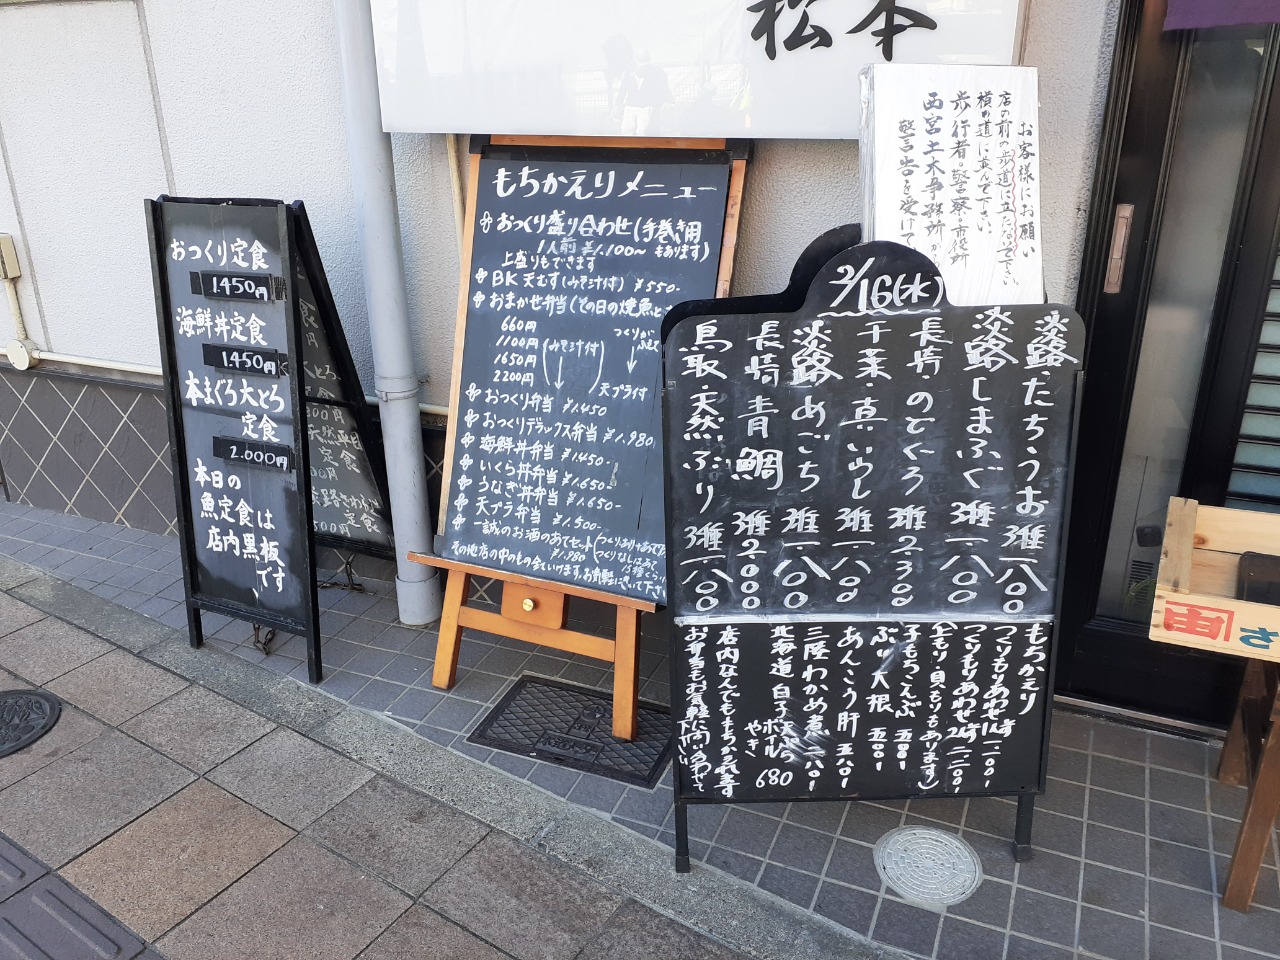 松本
お客様にお願い
店の前の歩道に立たないで下さい
横の道に並んで下さい
歩行者・警察・市役所
西宮土木事務所から
警告を受けて
おつくり定食
1450円
海鮮丼定食
1.450円
本まぐろ大とろ
定食
2.000円
本日の
魚定食は
店内黒板
です、
定食
もちかえりメニュー
おつくり盛り合わせ(手巻き用
1人前 ¥1,100〜 もあります)
上盛りもできます
BK 天むす(みそ汁付) ¥550-
おまかせ弁当(その日の焼魚と
660円
1100円
1650円
2200円
(みそ汁付)
つくりが
天プラ付
おつくり弁当 ¥1.450
おつくりデラックス弁当 ¥1.980
海鮮丼弁当 ¥1.450-
いくら丼弁当 ¥1.650-
うなぎ丼弁当 ¥1.650-
天プラ弁当 ¥1.500-
一誠のお酒のあてセット
¥1.980
その他店の中のもの全ていけます。お気軽に言って下さい
2/16(水)
淡路・たちうお 一八〇〇
淡路しまふぐ 一八〇〇
長崎・のどぐろ 2300
千葉・真いわし 一八〇〇
淡路あごち 一八〇〇
長崎青鯛 2000
鳥取・天然ぶり 一八〇〇
もちかえり
つくりもりあわせ
つくりもりあわせ 二.二〇〇-
(上もり・貝もりもあります)
子もちこんぶ 五〇〇-
ぶり大根 五〇〇-
あんこう肝 五八〇-
三陸わかめ煮
北海道白子 天ぷら
ボイル
やき 680
店内なんでももちかえれます
お弁当もお気軽に問い合わせて
下さい